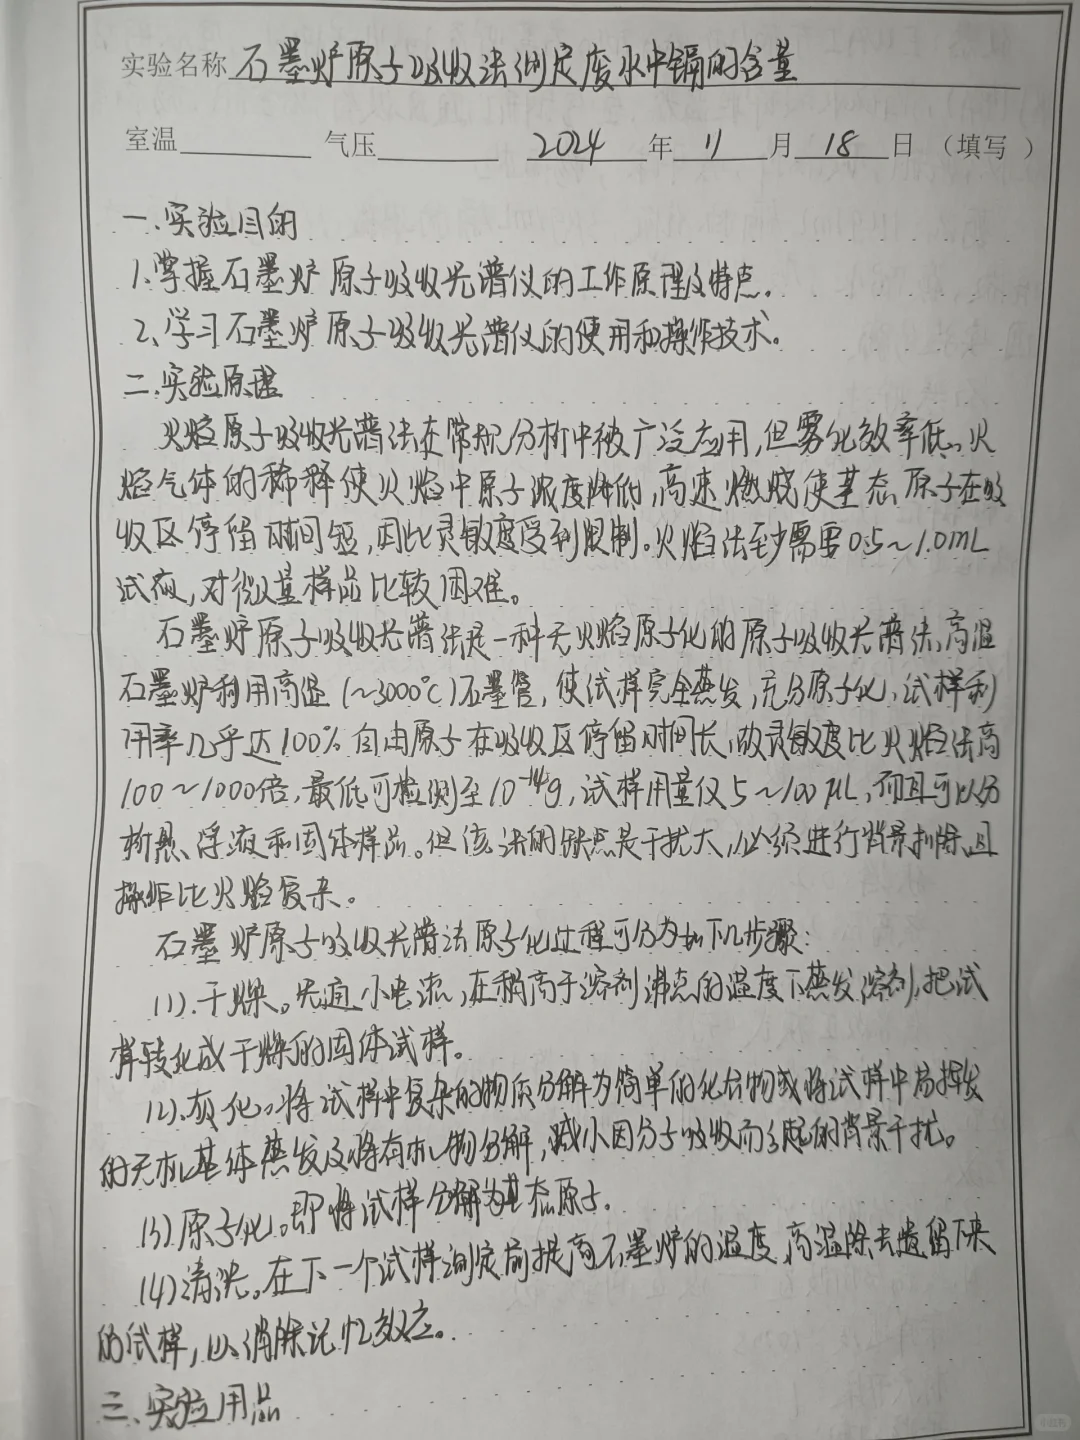 实验名称 石墨炉原子吸收法测定废水中镉的含量
室温 气压 2024 年 11 月 18 日 （填写 ）
一.实验目的
1.掌握石墨炉原子吸收光谱仪的工作原理及特点.
2.学习石墨炉原子吸收光谱仪的使用和操作技术.
二.实验原理
火焰原子吸收光谱法在常规分析中被广泛应用,但雾化效率低、火
焰气体的稀释使火焰中原子浓度降低,高速燃烧使基态原子在吸
收区停留时间短,因此灵敏度受到限制.火焰法至少需要0.5~1.0mL
试液,对微量样品比较困难。
石墨炉原子吸收光谱法是一种无火焰原子化的原子吸收光谱法,高温
石墨炉利用高温(~3000℃)石墨管,使试样完全蒸发,充分原子化,试样利
用率几乎达100%自由原子在吸收区停留时间长,故灵敏度比火焰法高
100~1000倍,最低可检测至10⁻¹⁴g,试样用量仅5~100μL,而且可以分
析悬浮液和固体样品。但该法的缺点是干扰大,必须进行背景扣除,且
操作比火焰复杂。
石墨炉原子吸收光谱法原子化过程可分为如下几步骤:
(1).干燥。先通小电流,在稍高于溶剂沸点的温度下蒸发溶剂,把试
样转化成干燥的固体试样。
(2).灰化。将试样中复杂的物质分解为简单的化合物或将试样中易挥发
的无机基体蒸发及将有机物分解,减小因分子吸收而引起的背景干扰。
(3)原子化。即将试样分解为基态原子.
(4)清洗。在下一个试样测定前提高石墨炉的温度,高温除去遗留下来
的试样,以消除记忆效应。
三、实验用品
小红书